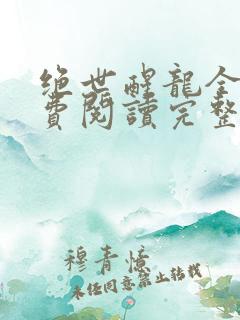 绝世醒龍全
費閱讀完整
穆青憶
未经同意禁止转载